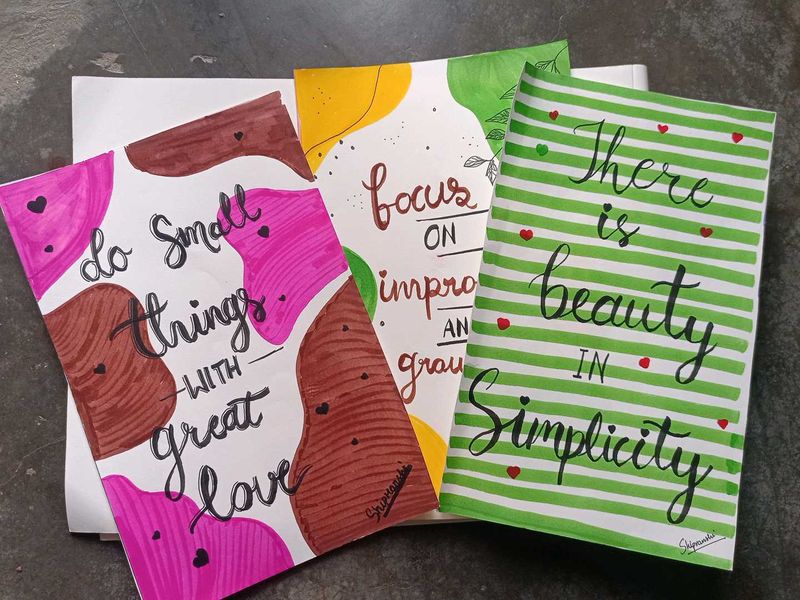 do Small
things
WITH
great
love
Shipranshi
focus
ON
impro
AN
grow
There
is
beauty
IN
Simplicity
Shipranshi